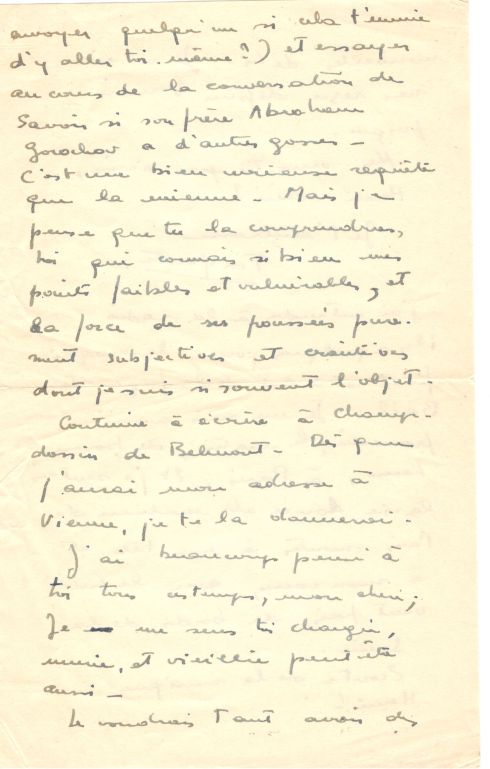 envoyer quelqu'un si cela t'ennuie
d'y aller toi-même?) et essayer
au cours de la conversation de
savoir si son frère Abraham
Gorochov a d'autres gosses -
C'est une bien curieuse requête
que la mienne - Mais je
pense que tu la comprendras,
toi qui connais si bien mes
points faibles et vulnérables, et
la force de ces poussées pure-
ment subjectives et craintives
dont je suis si souvent l'objet.
Continue à écrire à Champ-
dossin de Belmont - Dès que
j'aurai mon adresse à
Vienne, je te la donnerai.
J'ai beaucoup pensé à
toi tous ces temps, mon chéri;
Je me sens très changée,
murie, et vieillie peut être
aussi -
Je voudrais tant avoir des